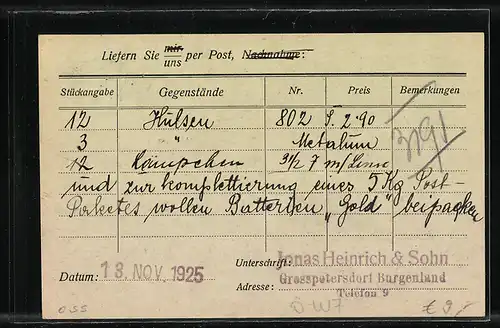 Liefern Sie mir/uns per Post, Nachnahme:
Stückangabe Gegenstände Nr. Preis Bemerkungen
12 Hülsen 802 S. 2.90
3 " Metalum
12 Lämpchen 3½ 7 m/Linse
und zur komplettierung eines 5 Kg Post-
Paketes wollen Batterien „Gold" beipacken
3191
Unterschrift: Jonas Heinrich & Sohn
Grosspetersdorf Burgenland
Datum: 13. NOV. 1925
Adresse: Telefon 9